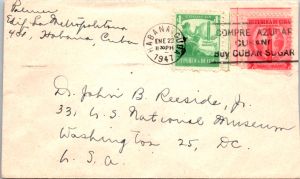 Palmer
Edif. La Metropolitana
401, Habana, Cuba
HABANA
ENE 23
11-30PM
1947
COMPRE AZUCAR
CUBANO
BUY CUBAN SUGAR
Dr. John B. Reeside, Jr.
33, U.S. National Museum
Washington 25, D.C.
U.S.A.